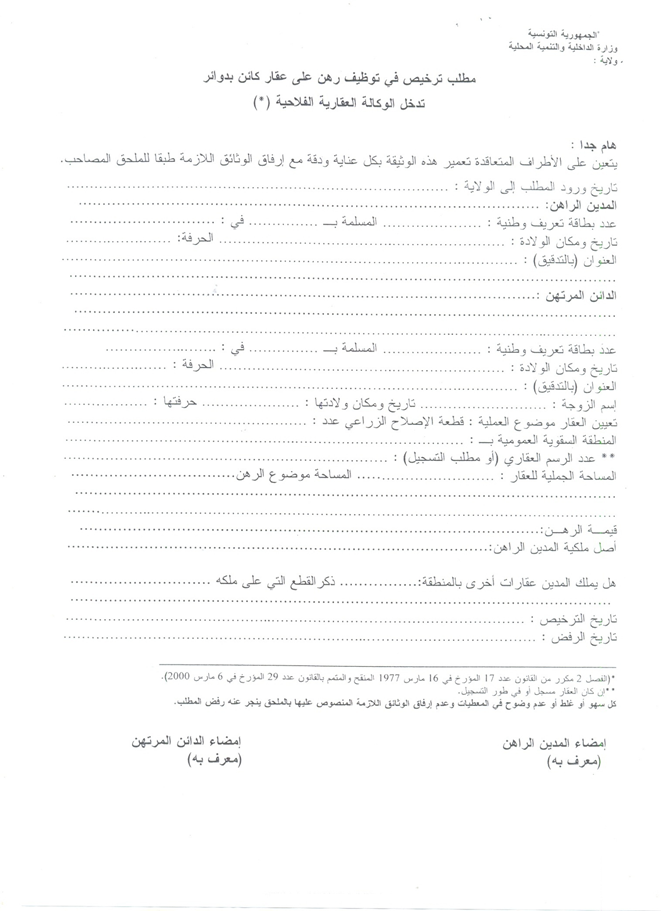 الجمهورية التونسية
وزارة الداخلية والتنمية المحلية
ولاية :
مطلب ترخيص في توظيف رهن على عقار كائن بدوائر
تدخل الوكالة العقارية الفلاحية (*)
هام جدا :
يتعين على الأطراف المتعاقدة تعمير هذه الوثيقة بكل عناية ودقة مع إرفاق الوثائق اللازمة طبقا للملحق المصاحب.
تاريخ ورود المطلب إلى الولاية : ................................
المدين الراهن: ................................
عدد بطاقة تعريف وطنية : ................ المسلمة بـــ ............. في : ................
تاريخ ومكان الولادة : ................................ الحرفة: ................
العنوان (بالتدقيق) : ................................
................................
الدائن المرتهن : ................................
................................
................................
عدد بطاقة تعريف وطنية : ................ المسلمة بـــ ............. في : ................
تاريخ ومكان الولادة : ................................ الحرفة : ................
العنوان (بالتدقيق) : ................................
إسم الزوجة : ................ تاريخ ومكان ولادتها : ................ حرفتها : ................
تعيين العقار موضوع العملية : قطعة الإصلاح الزراعي عدد : ................................
المنطقة السقوية العمومية بـــ : ................................
** عدد الرسم العقاري (أو مطلب التسجيل) : ................................
المساحة الجملية للعقار : ................ المساحة موضوع الرهن................
................................
................................
قيمـــة الرهـــن:................................
أصل ملكية المدين الراهن:................................
هل يملك المدين عقارات أخرى بالمنطقة:................ ذكر القطع التي على ملكه ................
................................
تاريخ الترخيص : ................................
تاريخ الرفض : ................................
*(الفصل 2 مكرر من القانون عدد 17 المؤرخ في 16 مارس 1977 المنقح والمتمم بالقانون عدد 29 المؤرخ في 6 مارس 2000).
**إن كان العقار مسجل أو في طور التسجيل.
كل سهو أو غلط أو عدم وضوح في المعطيات وعدم إرفاق الوثائق اللازمة المنصوص عليها بالملحق ينجر عنه رفض المطلب.
إمضاء المدين الراهن إمضاء الدائن المرتهن
(معرف به) (معرف به)